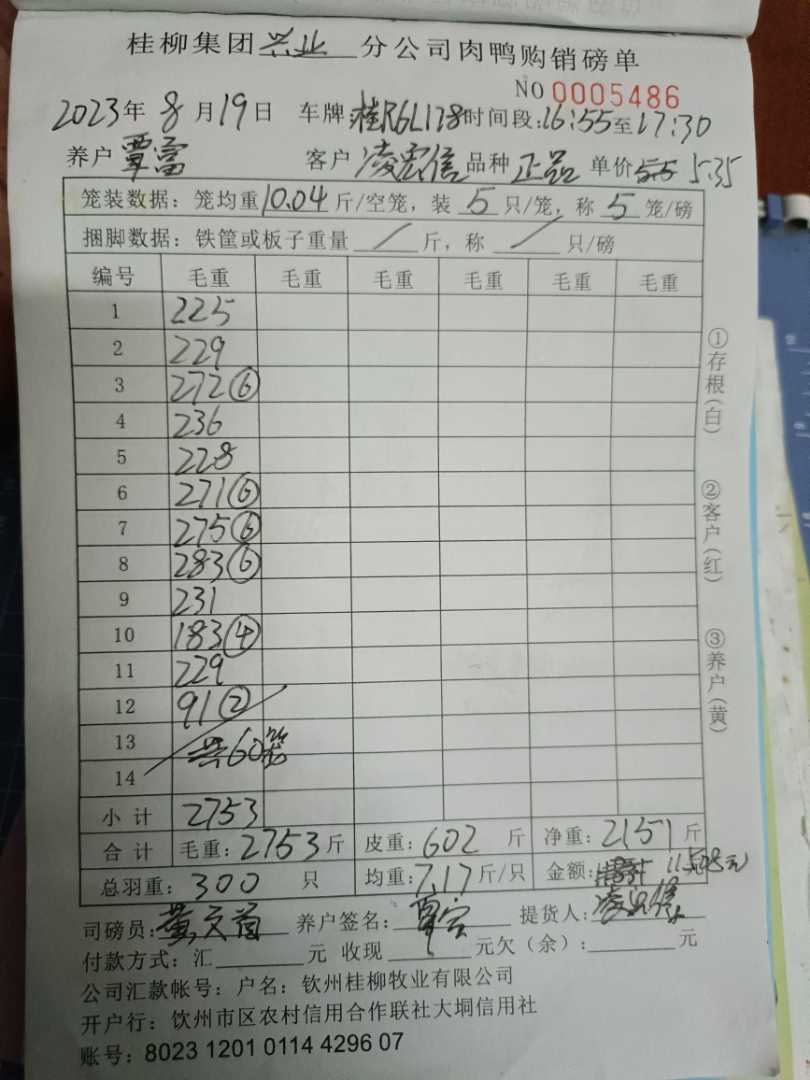 桂柳集团兴业分公司肉鸭购销磅单
NO 0005486
2023年8月19日 车牌:桂R6L178 时间段:16:55至17:30
养户 覃富 客户 凌宏信 品种 正品 单价 5.35
笼装数据:笼均重10.04斤/空笼,装5只/笼,称5笼/磅
捆脚数据:铁筐或板子重量/斤,称/只/磅
编号 毛重 毛重 毛重 毛重 毛重 毛重
1 225
2 229
3 272⑥
4 236
5 228
6 271⑥
7 275⑥
8 283⑥
9 231
10 183④
11 229
12 91②
13 共60笼
14
小计 2753
合计 毛重:2753斤 皮重:602斤 净重:2151斤
总羽重:300只 均重:7.17斤/只 金额: 11508元
司磅员: 养户签名: 提货人:
付款方式:汇 元 收现 元欠(余): 元
公司汇款帐号:户名:钦州桂柳牧业有限公司
开户行:钦州市区农村信用合作联社大垌信用社
账号:8023 1201 0114 4296 07
①存根(白)
②客户(红)
③养户(黄)